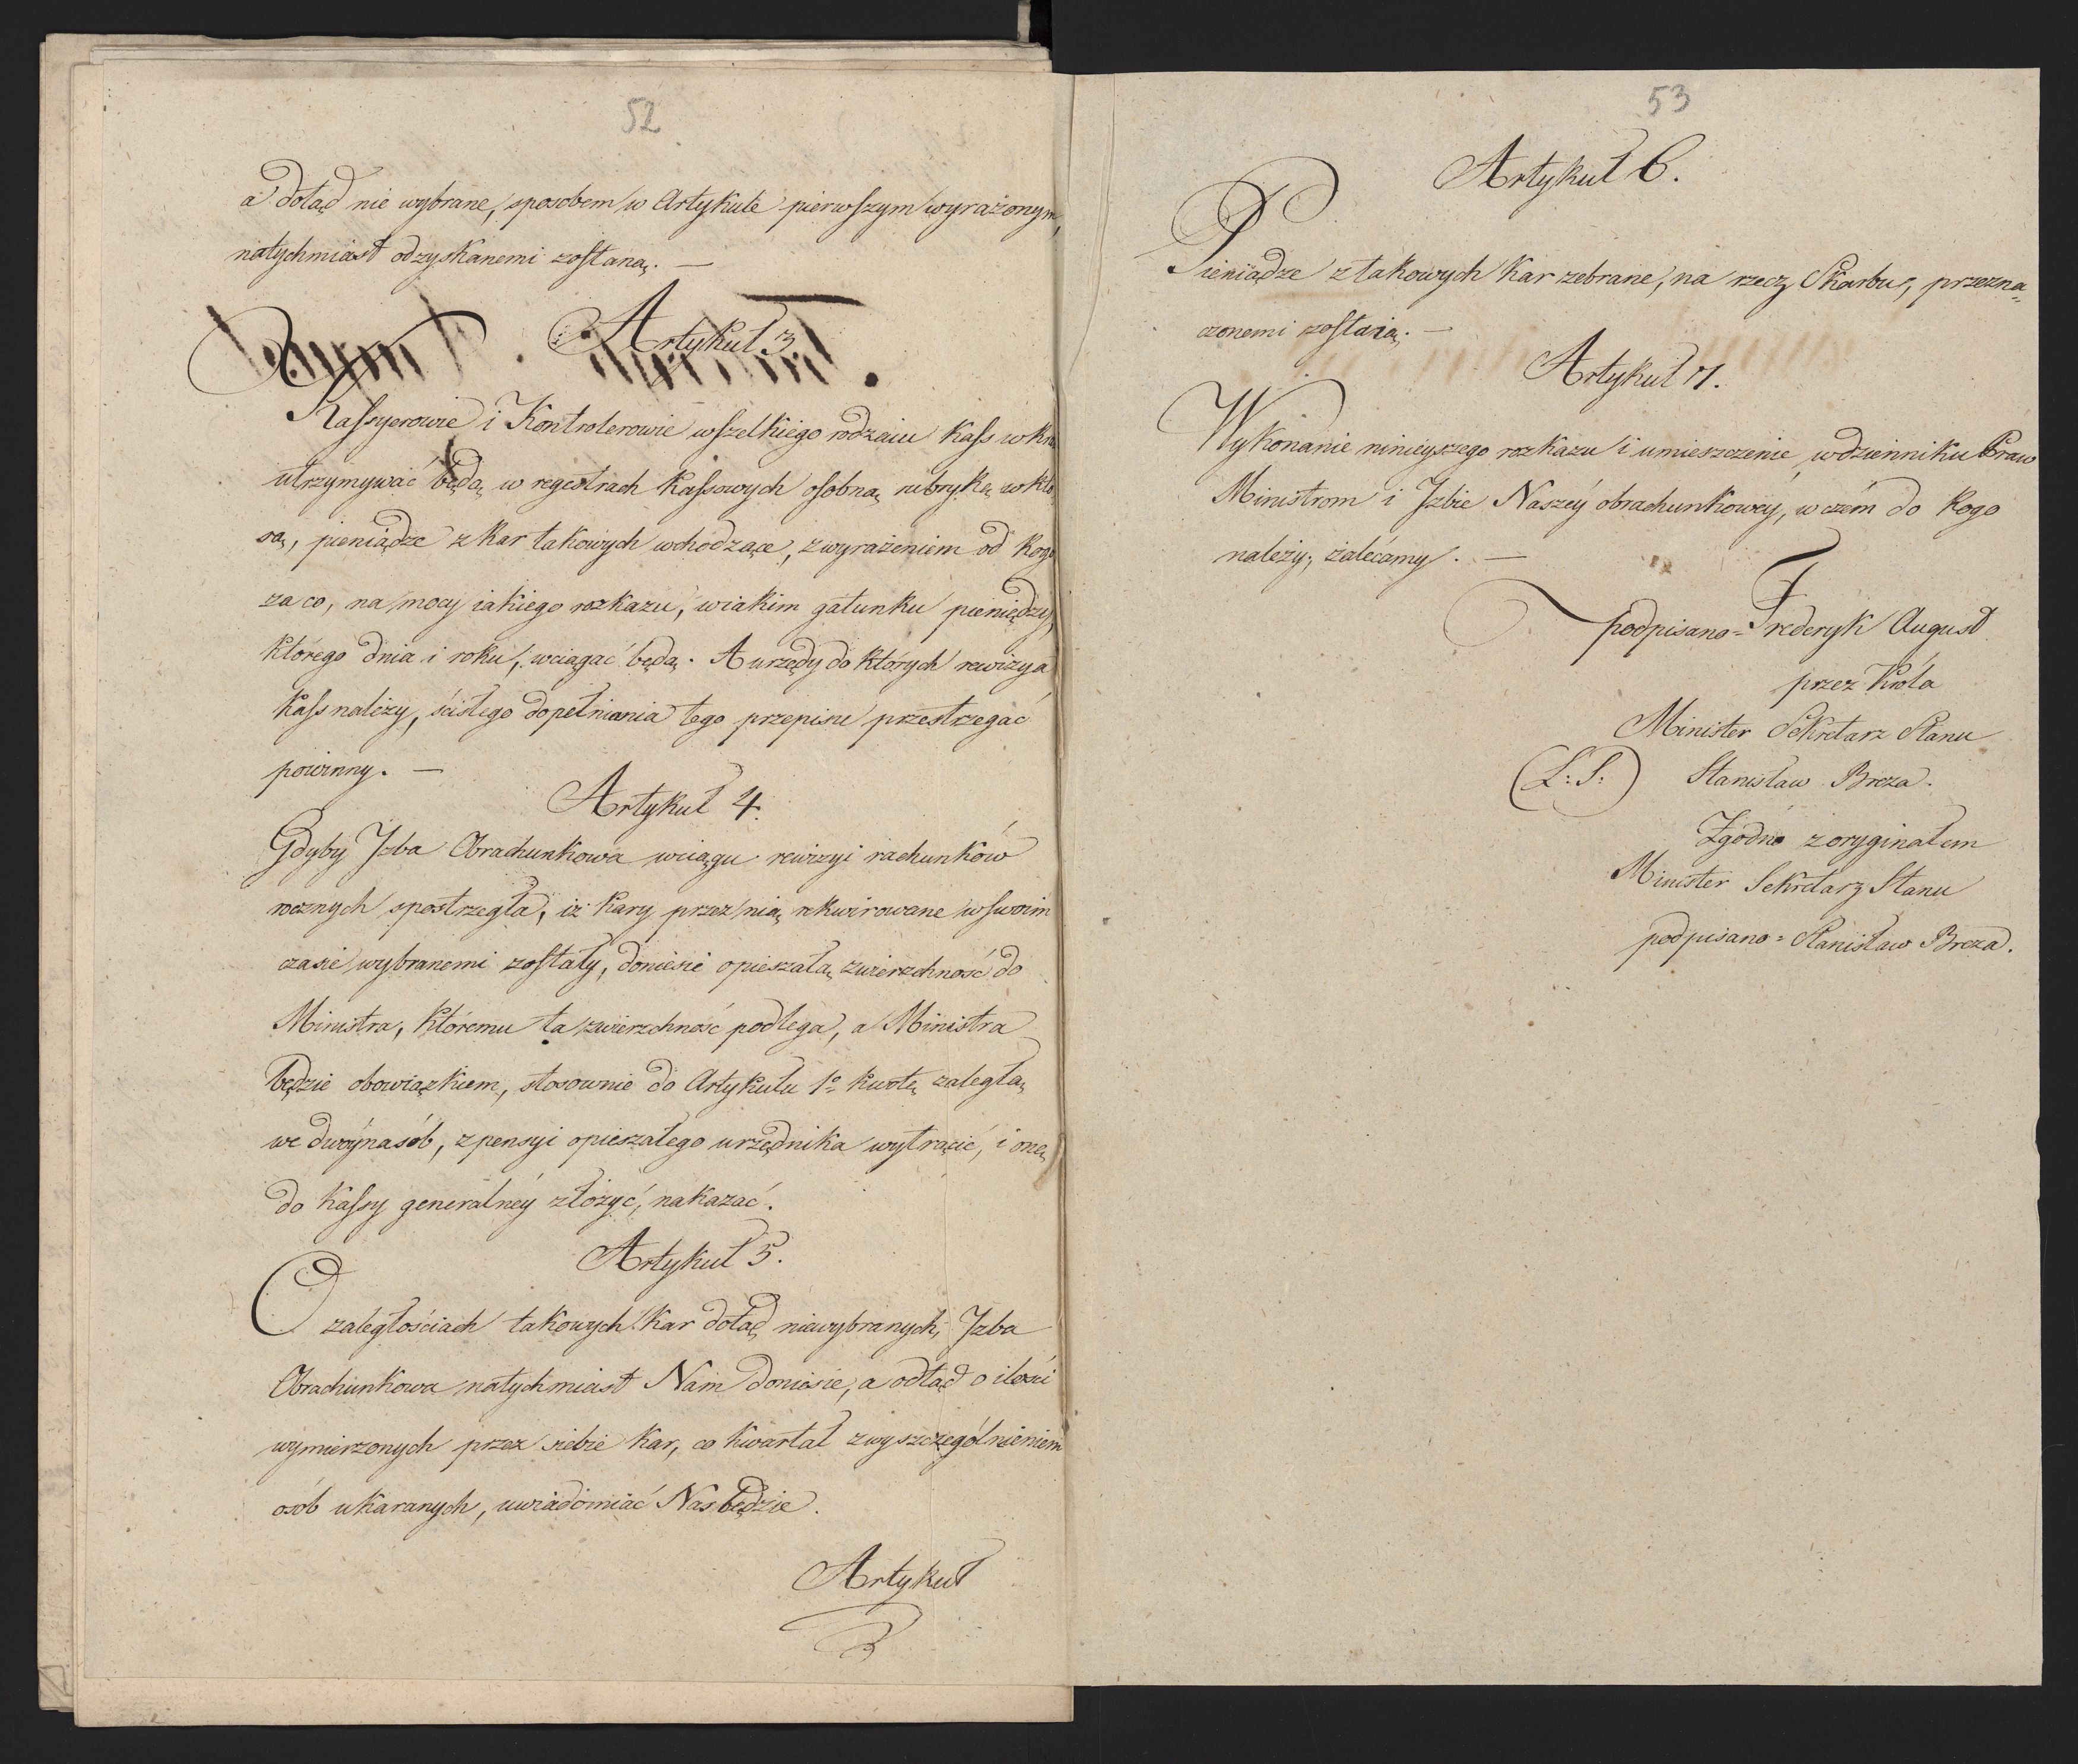 52
a dotąd nie wybrane, sposobem w Artykule pierwszym wyrażonym,
natychmiast odzyskanemi zostaną. —
Artykuł 3
Kassyerowie i Kontrolerowie wszelkiego rodzaiu Kass w
utrzymywać będą w regestrach Kassowych osobną rubrykę, w
są, pieniądze z Kar takowych wchodzące, z wyrażeniem od Kogo
za co, na mocy iakiego rozkazu, w iakim gatunku pieniędzy,
którego dnia i roku, wciągać będą. A urzędy do których rewizya
Kass należy, ścisłego dopełniania tego przepisu przestrzegać
powinny. —
Artykuł 4.
Gdyby Jzba Obrachunkowa w ciągu rewizyi rachunków
rocznych spostrzegła, iż Kary przez nią rekwirowane w swoim
czasie wybranemi zostały, doniesie opieszałą zwierzchność do
Ministra, Któremu ta zwierzchność podlega, a Ministra
będzie obowiązkiem, stosownie do Artykułu 1º kwotę zaległą,
we dwóynasób, z pensyi opieszałego urzędnika wytrącić, i onę
do Kassy generalnéy złożyć, nakazać.
Artykuł 5.
O zaległościach takowych Kar dotąd niewybranych, Jzba
Obrachunkowa natychmiast Nam doniesie, a odtąd o ilości
wymierzonych przez siebie Kar, co kwartał z wyszczególnieniem
osób ukaranych, uwiadomiać Nas będzie.
Artykuł
53
Artykuł 6.
Pieniądze z takowych Kar zebrane, na rzecz Skarbu, przezna=
czonemi zostaią. —
Artykuł 7.
Wykonanie ninieyszego rozkazu i umieszczenie w dzienniku Praw
Ministrom i Jzbie Naszéy obrachunkowéy, w czém do Kogo
należy, zalécamy. —
podpisano = Frederyk August
przez Króla
Minister Sekretarz Stanu
(L: S:) Stanisław Breza.
Zgodno z oryginałem
Minister Sekretarz Stanu
podpisano = Stanisław Breza.